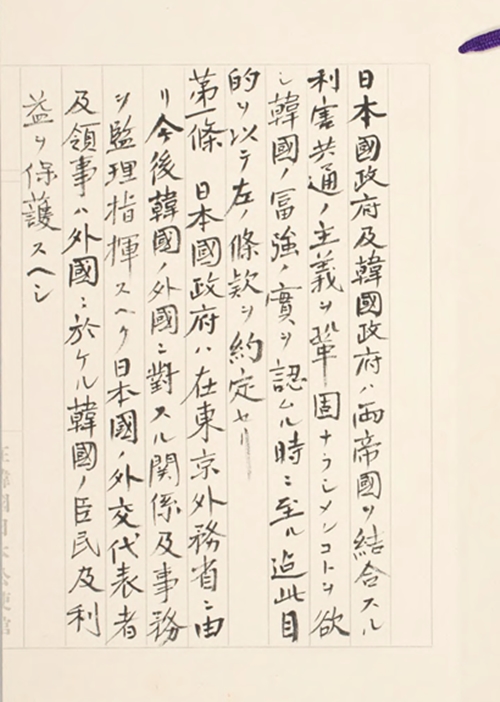 日本國政府及韓國政府ハ両帝國ヲ結合スル
利害共通ノ主義ヲ鞏固ナラシメンコトヲ欲
シ韓國ノ冨強ノ實ヲ認ムル時ニ至ル迠此目
的ヲ以テ左ノ條款ヲ約定セリ
第一條 日本國政府ハ在東京外務省ニ由
リ今後韓國ノ外國ニ對スル関係及事務
ヲ監理指揮スヘク日本國ノ外交代表者
及領事ハ外國ニ於ケル韓國ノ臣民及利
益ヲ保護スヘシ